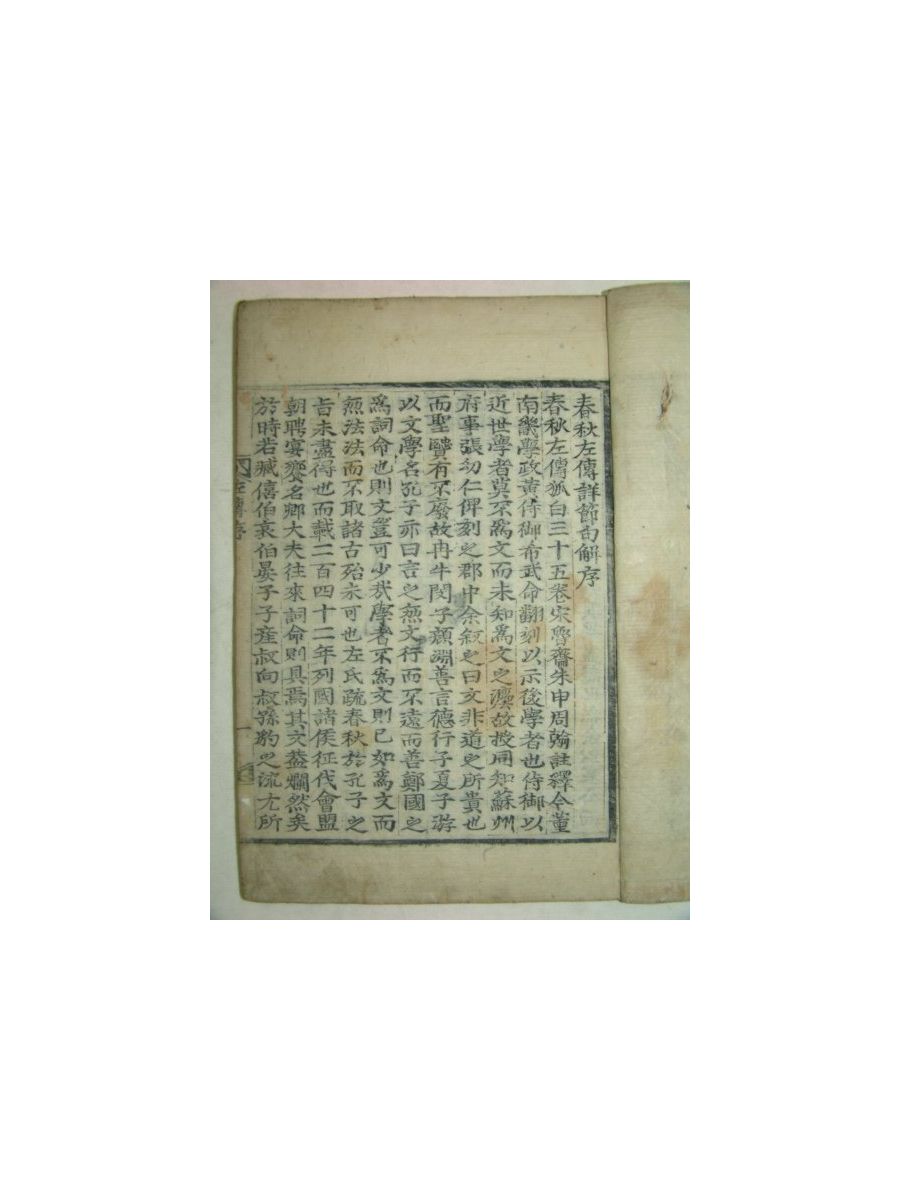 春秋左傳詳節句解序
春秋左傳狐白三十五卷宋魯齋朱申周翰註釋今董
南畿學政黃侍御希武命翻刻以示後學者也侍御以
近世學者莫不爲文而未知爲文之灋故授同知蘇州
府事張幼仁俾刻之郡中余叙之曰文非道之所貴也
而聖贒有不廢故冉牛閔子顔淵善言德行子夏子游
以文學名孔子亦曰言之無文行而不遠而善鄭國之
爲詞命也則文豈可少㢤學者不爲文則已如爲文而
無法法而不取諸古殆未可也左氏疏春秋於孔子之
旨未盡得也而載二百四十二年列國諸侯征伐會盟
朝聘宴饗名卿大夫往來詞命則具焉其文蓋爛然矣
於時若臧僖伯哀伯晏子子產叔向叔孫豹之流尤所
左傳序
一